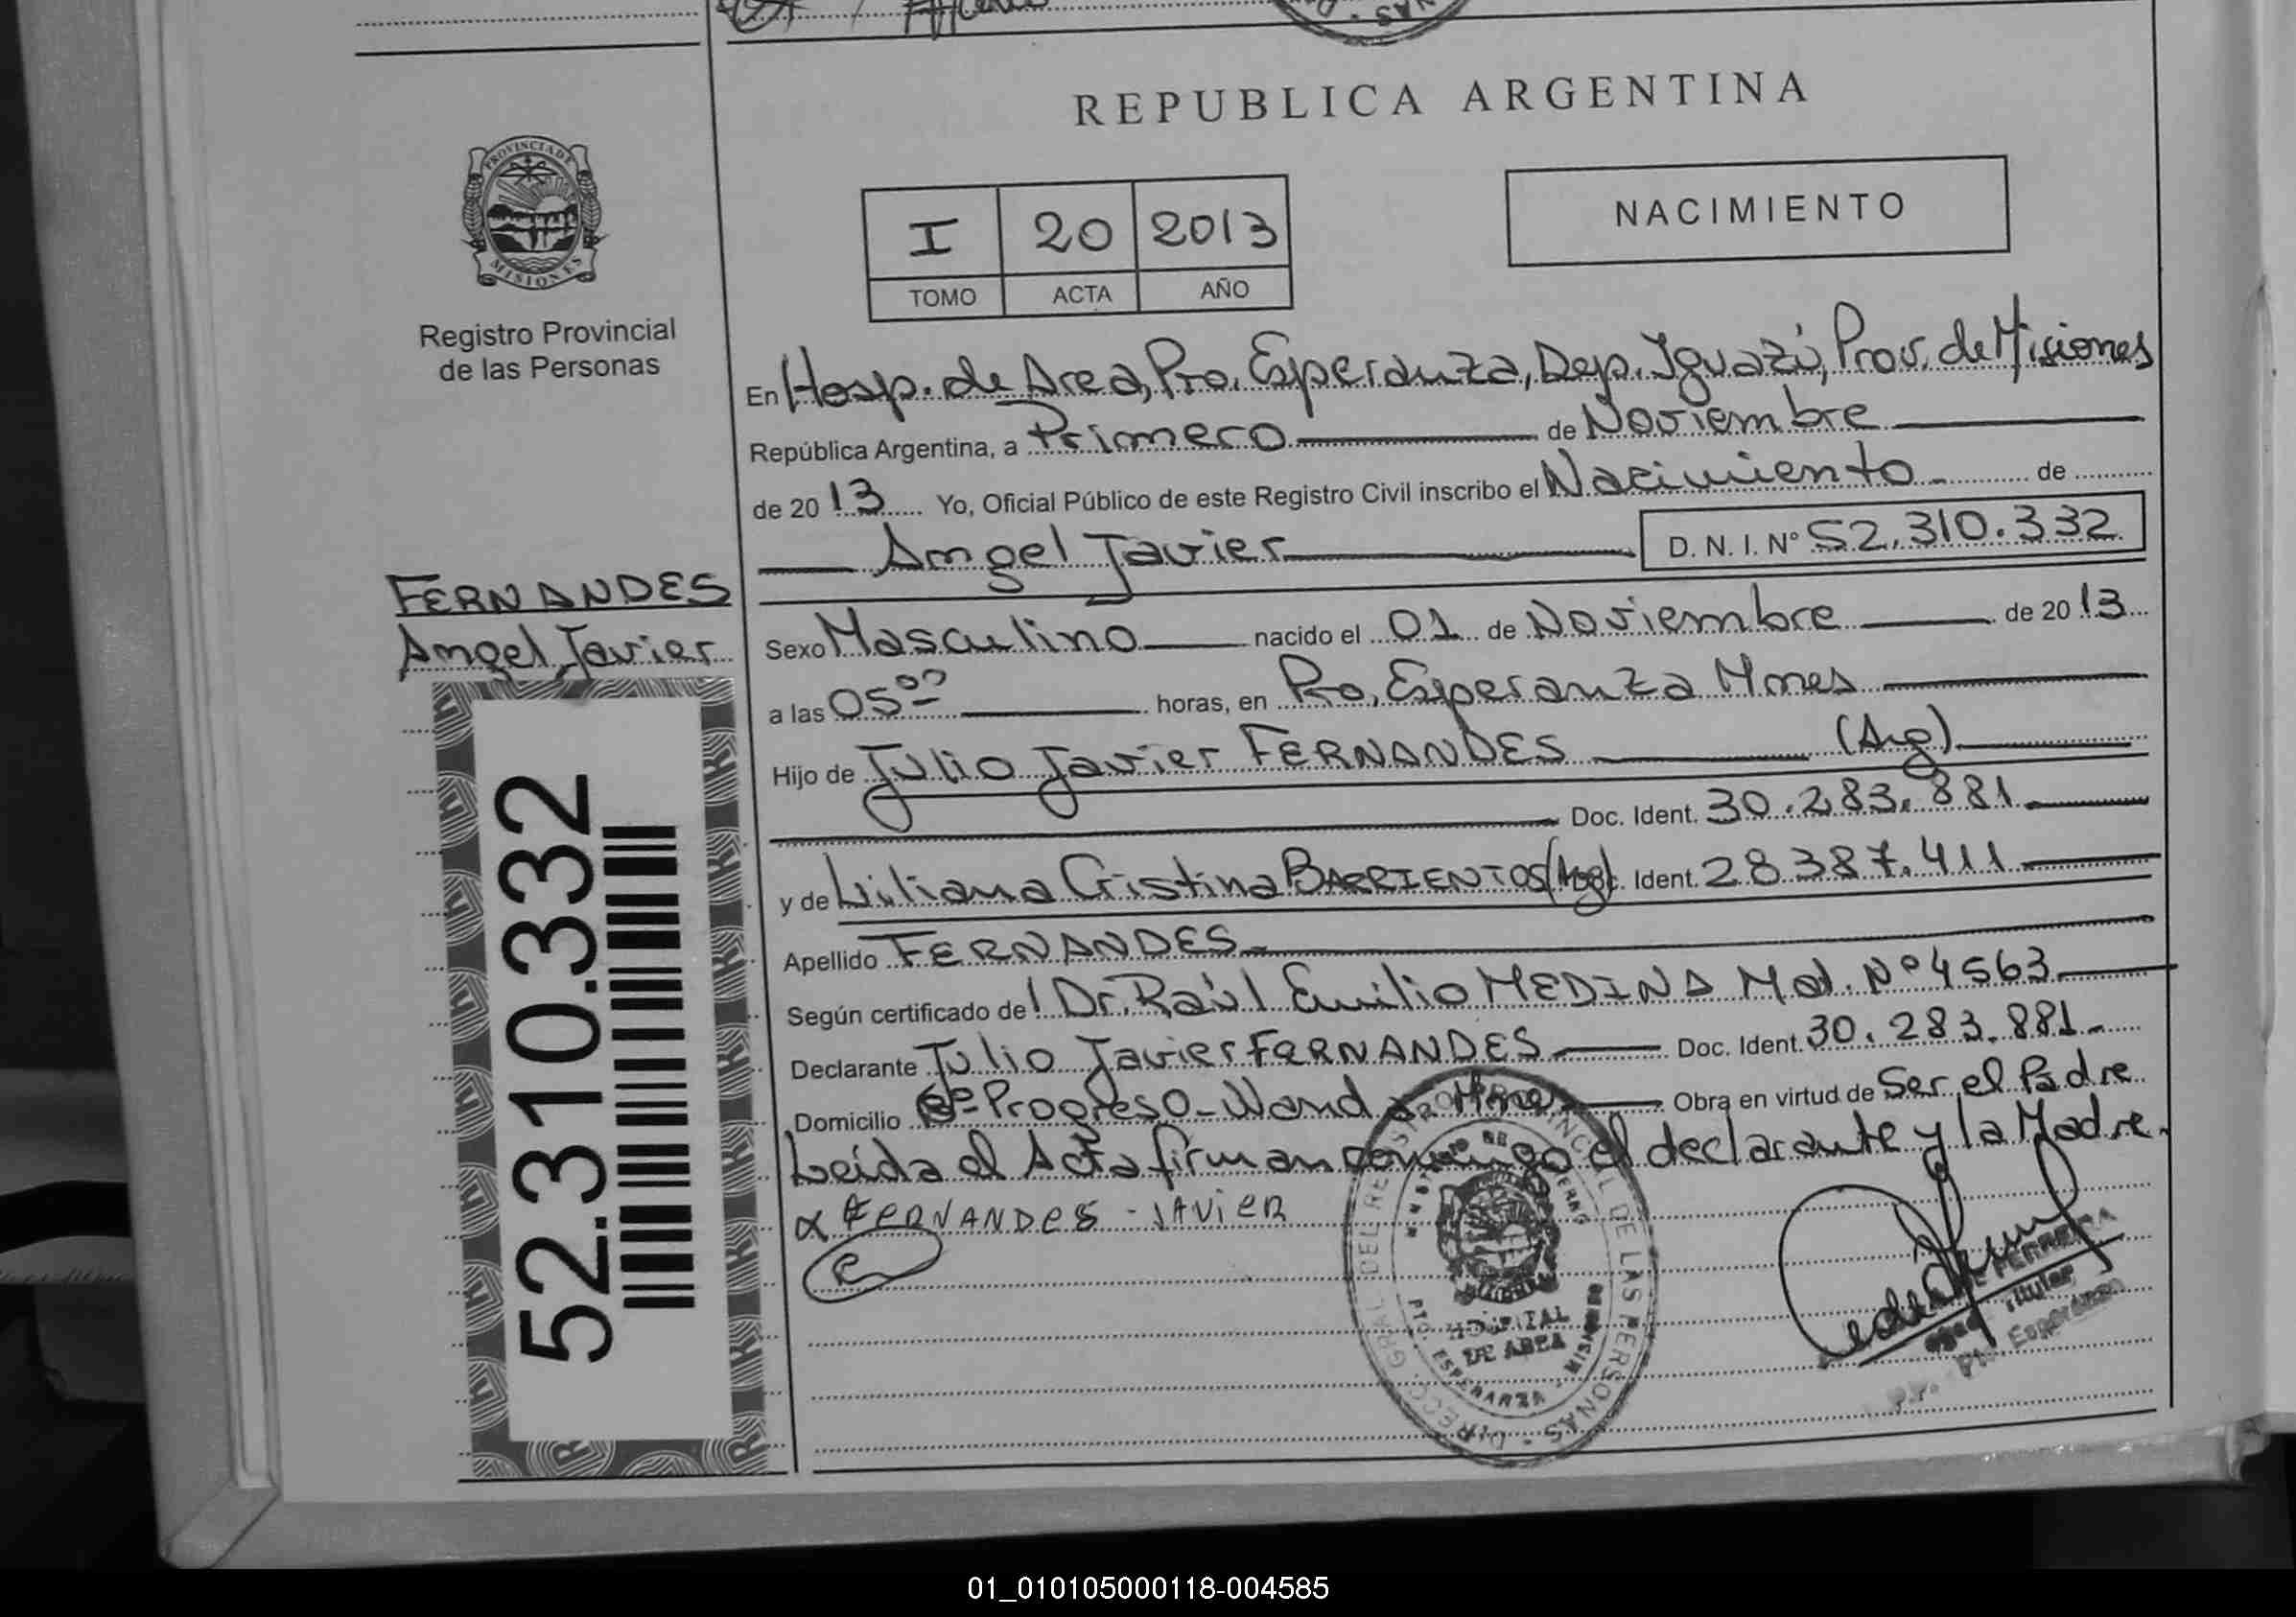 REPUBLICA ARGENTINA
PROVINCIA DE
MISIONES
Registro Provincial
de las Personas
I 20 2013
TOMO ACTA AÑO
NACIMIENTO
En Hosp. de Area, Pto. Esperanza, Dep. Iguazú, Prov. de Misiones
República Argentina, a Primero de Noviembre
de 20 13 Yo, Oficial Público de este Registro Civil inscribo el Nacimiento de
Angel Javier D. N. I. Nº 52.310.332
FERNANDES
Angel Javier
52.310.332
Sexo Masculino nacido el 01 de Noviembre de 20 13
a las 05 00 horas, en Pto. Esperanza Mnes
Hijo de Julio Javier FERNANDES (Arg)
Doc. Ident. 30.283.881
y de Liliana Cristina BARRIENTOS (Arg) Ident. 28387.411
Apellido FERNANDES
Según certificado de l Dr. Raúl Emilio MEDINA Mat. Nº 4563
Declarante Julio Javier FERNANDES Doc. Ident. 30.283.881
Domicilio Bº Progreso - Wanda - Mnes Obra en virtud de Ser el Padre
Leída el Acta firman conmigo el declarante y la Madre.
FERNANDES - JAVIER
DIRECC. GRAL. DEL REGISTRO PROVINCIAL DE LAS PERSONAS
HOSPITAL
DE AREA
PTO. ESPERANZA - MISIONES
01_010105000118-004585